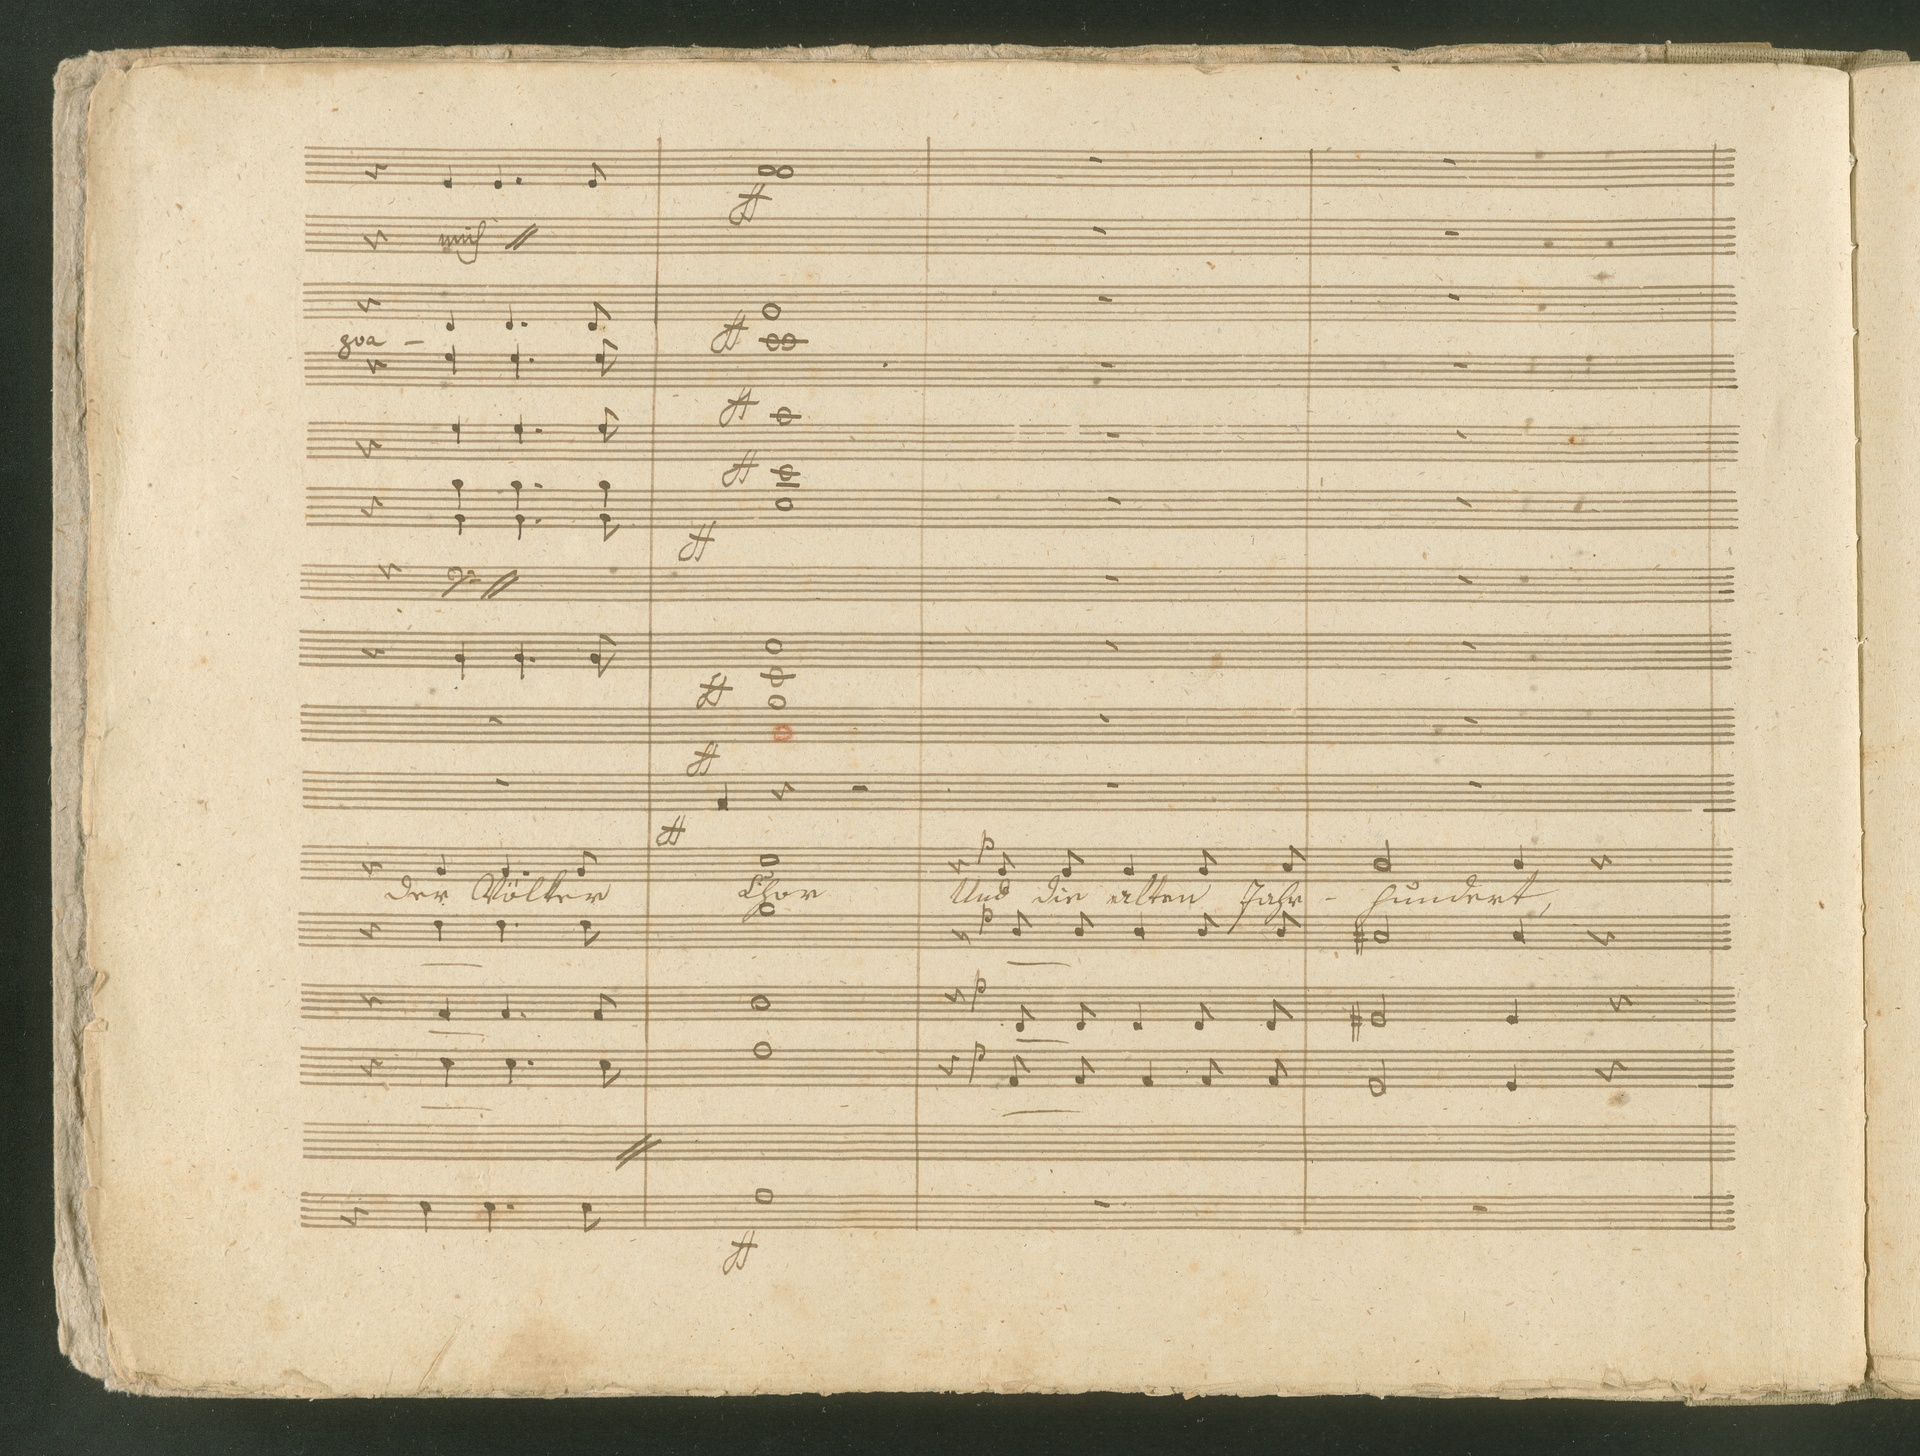 8va –
der Völker Chor Und die alten Jahr - hundert,
p
p
p
p